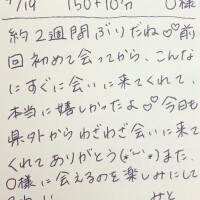 /19 150+10分 O様
約2週間ぶりだね♡♡前
回初めて会ってから、こんな
にすぐに会いに来てくれて、
本当に嬉しかったよ♡今日も
県外からわざわざ会いに来て
くれてありがとう(*˘︶˘*)また、
O様に会えるのを楽しみにして